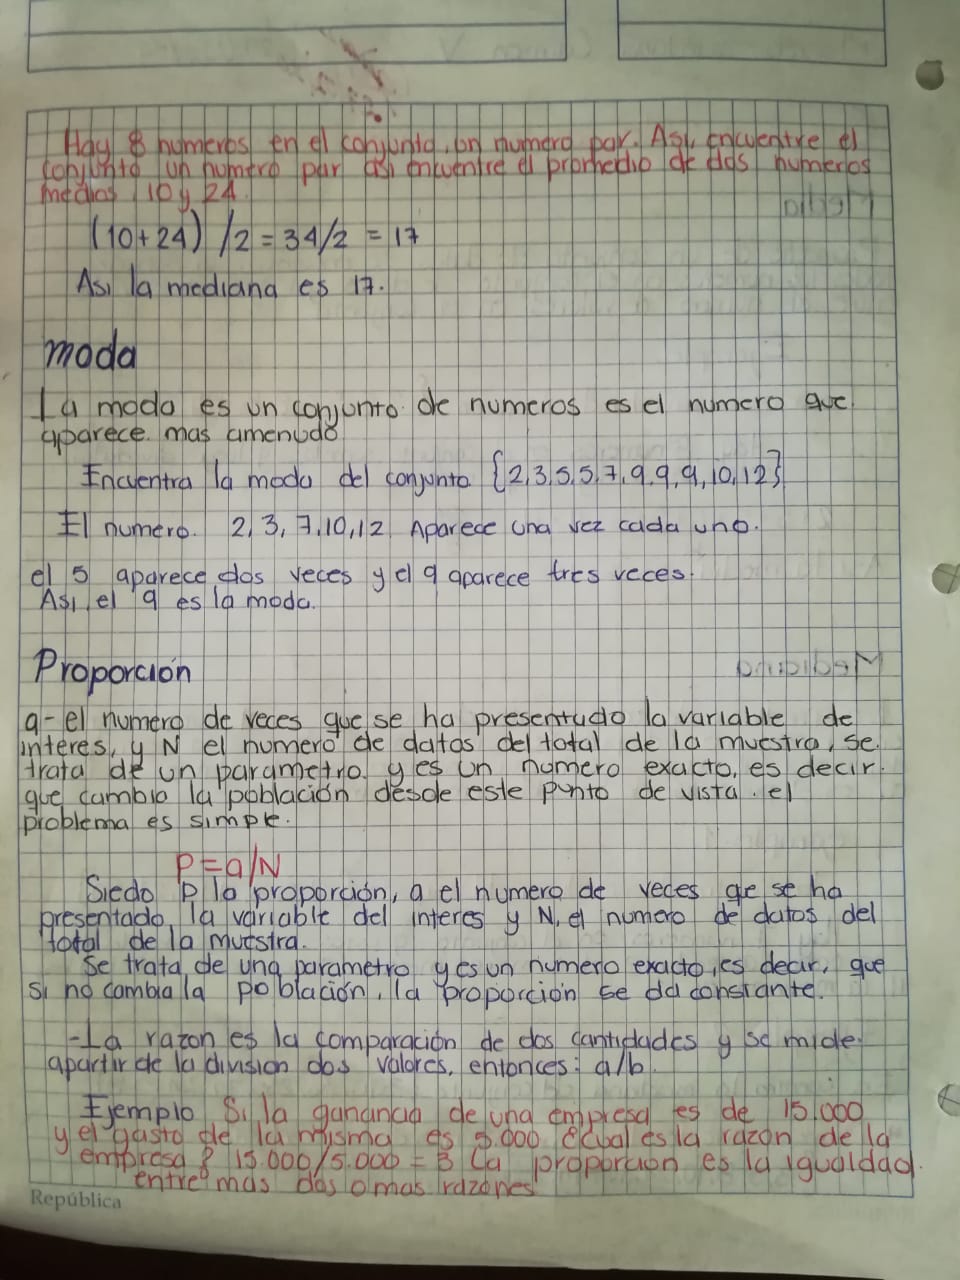 Hay 8 numeros en el conjunto, un numero par. Asi, encuentre el
conjunto un numero par asi encuentre el promhedio de dos numeros
medios 10 y 24.
(10+24) /2 = 34/2 = 17
Asi la mediana es 17.
moda
La moda es un conjunto de numeros es el numero que
aparece mas amenudo
Encuentra la moda del conjunto {2,3,5,5,7,9,9,9,10,12}
El numero. 2, 3, 7, 10, 12 Aparece una vez cada uno.
el 5 aparece dos veces y el 9 aparece tres veces.
Asi, el 9 es la moda.
Proporción
Mediana
a- el numero de veces que se ha presentado la variable de
interes, y N el numero de datos del total de la muestra, se
trata de un parametro y es un numero exacto, es decir.
que cambio la población desde este punto de vista. el
problema es simple.
P=a/N
Siedo P la proporción, a el numero de veces qe se ha
presentado la variable del interes y N, el numero de datos del
total de la muestra.
Se trata de una parametro y es un numero exacto, es decir, que
si no cambia la población, la proporción se da constante.
-La razon es la comparación de dos cantidades y se mide
apartir de la division dos valores, entonces: a/b.
Ejemplo Si la ganancia de una empresa es de 15.000
y el gasto de la misma es 5.000 ¿cual es la razon de la
empresa? 15.000/5.000 = 3 La proporcion es la igualdad
entre mas dos o mas razones
República